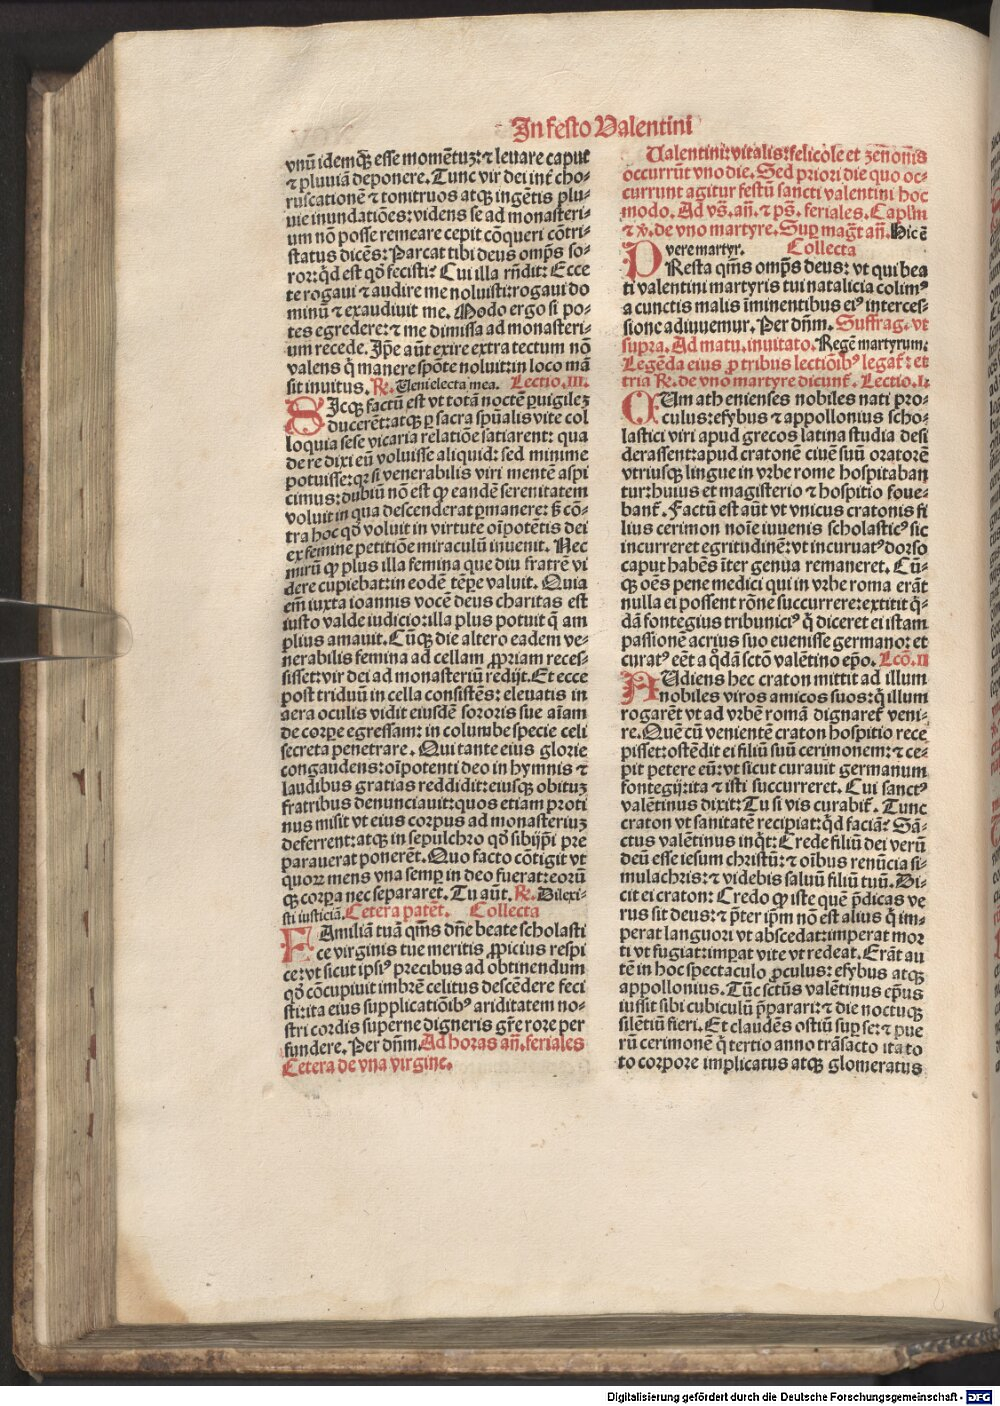 In festo Valentini
vnū idemq̄ esse momētuꝫ: ⁊ leuare caput
⁊ pluuiā deponere. Tunc vir dei int̄ cho-
ruscationē ⁊ tonitruos atqꝫ ingētis plu-
uie inundatiōes: videns se ad monasteri-
um nō posse remeare cepit cōqueri cōtri-
status dicēs: Parcat tibi deus omp̄s so-
ror: q̄d est qd̄ fecisti? Cui illa rn̄dit: Ecce
te rogaui ⁊ audire me noluisti: rogaui do
minū ⁊ exaudiuit me. Modo ergo si po-
tes egredere: ⁊ me dimissa ad monasteri-
um recede. Ip̄e aūt exire extra tectum nō
valens q̄ manere spōte noluit: in loco mā
sit inuitus. R̄. Veni electa mea. Lectio .III.
SIcqꝫ factū est vt totā noctē ꝑuigileꝫ
ducerēt: atqꝫ ꝑ sacra sp̄ualis vite col
loquia sese vicaria relatiōe satiarent: qua
de re dixi eū voluisse aliquid: sed minime
potuisse: qꝛ si venerabilis viri mentē aspi
cimus: dubiū nō est ꝙ eandē serenitatem
voluit in qua descenderat ꝑmanere: sꝫ cō-
tra hoc qd̄ voluit in virtute oīpotētis dei
ex femine petitiōe miraculū inuenit. Nec
mirū ꝙ plus illa femina que diu fratrē vi
dere cupiebat: in eodē tēꝑe valuit. Quia
em̄ iuxta ioannis vocē deus charitas est
iusto valde iudicio: illa plus potuit q̄ am
plius amauit. Cūqꝫ die altero eadem ve-
nerabilis femina ad cellam ꝓpriam reces-
sisset: vir dei ad monasteriū redijt. Et ecce
post triduū in cella consistēs: eleuatis in
aera oculis vidit eiusdē sororis sue aīam
de corꝑe egressam: in columbe specie celi
secreta penetrare. Qui tante eius glorie
congaudens: oīpotenti deo in hymnis ⁊
laudibus gratias reddidit: eiusqꝫ obituꝫ
fratribus denunciauit: quos etiam ꝓti
nus misit vt eius corpus ad monasteriuꝫ
deferrent: atqꝫ in sepulchro qd̄ sibijp̄i pre
parauerat ponerēt. Quo facto cōtigit vt
quoꝝ mens vna semꝑ in deo fuerat: eorū
qꝫ corꝑa nec separaret. Tu aūt. R̄. Dilexi-
sti iusticiā. Cetera patēt. Collecta
FAmiliā tuā qm̄s dn̄e beate scholasti
ce virginis tue meritis ꝓpicius respi
ce: vt sicut ipsiꝰ precibus ad obtinendum
qd̄ cōcupiuit imbrē celitus descēdere feci
sti: ita eius supplicatiōibꝰ ariditatem no-
stri cordis superne digneris gr̄e rore per
fundere. Per dn̄m. Ad horas an̄. feriales
Cetera de vna virgine.
Valentini: vitalis: felicole et zenonis
occurrūt vno die. Sed priori die quo oc-
currunt agitur festū sancti valentini hoc
modo. Ad vs̄. an̄. ⁊ ps̄. feriales. Caplm̄
⁊ v̄. de vno martyre. Suꝑ maḡt an̄. Hic ē
vere martyr. Collecta
PResta qm̄s omp̄s deus: vt qui bea
ti valentini martyris tui natalicia colimꝰ
a cunctis malis īminentibus eiꝰ interces-
sione adiuuemur. Per dn̄m. Suffrag. vt
supra. Ad matu. inuitato. Regē martyrum.
Legēda eius ꝓ tribus lectiōibꝰ legat᷑: et
tria R̄. de vno martyre dicunt᷑. Lectio .I.
CUm ath enienses nobiles nati pro-
culus: efybus ⁊ appollonius scho-
lastici viri apud grecos latina studia desi
derassent: apud cratonē ciuē suū oratorē
vtriusqꝫ lingue in vrbe rome hospitaban
tur: huius et magisterio ⁊ hospitio foue-
bant᷑. Factū est aūt vt vnicus cratonis fi
lius cerimon noīe iuuenis scholasticꝰ sic
incurreret egritudinē: vt incuruatꝰ dorso
caput habēs īter genua remaneret. Cū-
qꝫ oēs pene medici qui in vrbe roma erāt
nulla ei possent rōne succurrere: extitit q̄-
dā fontegius tribuniciꝰ q̄ diceret ei istam
passionē acrius suo euenisse germano: et
curatꝰ eēt a q̄dā sctō valētino epō. Lcō. II
AUdiens hec craton mittit ad illum
nobiles viros amicos suos: q̄ illum
rogarēt vt ad vrbē romā dignaret᷑ veni-
re. Quē cū venientē craton hospitio rece
pisset: ostēdit ei filiū suū cerimonem: ⁊ ce-
pit petere eū: vt sicut curauit germanum
fontegij: ita ⁊ isti succurreret. Cui sanctꝰ
valētinus dixit: Tu si vis curabit᷑. Tunc
craton vt sanitatē recipiat: q̄d faciā? Sā-
ctus valētinus inq̄t: Crede filiū dei verū
deū esse iesum christū: ⁊ oībus renūcia si-
mulachris: ⁊ videbis saluū filiū tuū. Di-
cit ei craton: Credo ꝙ iste quē p̄dicas ve
rus sit deus: ⁊ p̄ter ip̄m nō est alius q̄ im-
perat languori vt abscedat: imperat mor
ti vt fugiat: imꝑat vite vt redeat. Erāt au
tē in hoc spectaculo ꝓculus: efybus atqꝫ
appollonius. Tūc sctūs valētinus ep̄us
iussit sibi cubiculū p̄parari: ⁊ die noctuqꝫ
silētiū fieri. Et claudēs ostiū suꝑ se: ⁊ pue
rū cerimonē q̄ tertio anno trāsacto ita to
to corpore implicatus atqꝫ glomeratus
Digitalisierung gefördert durch die Deutsche Forschungsgemeinschaft - DFG